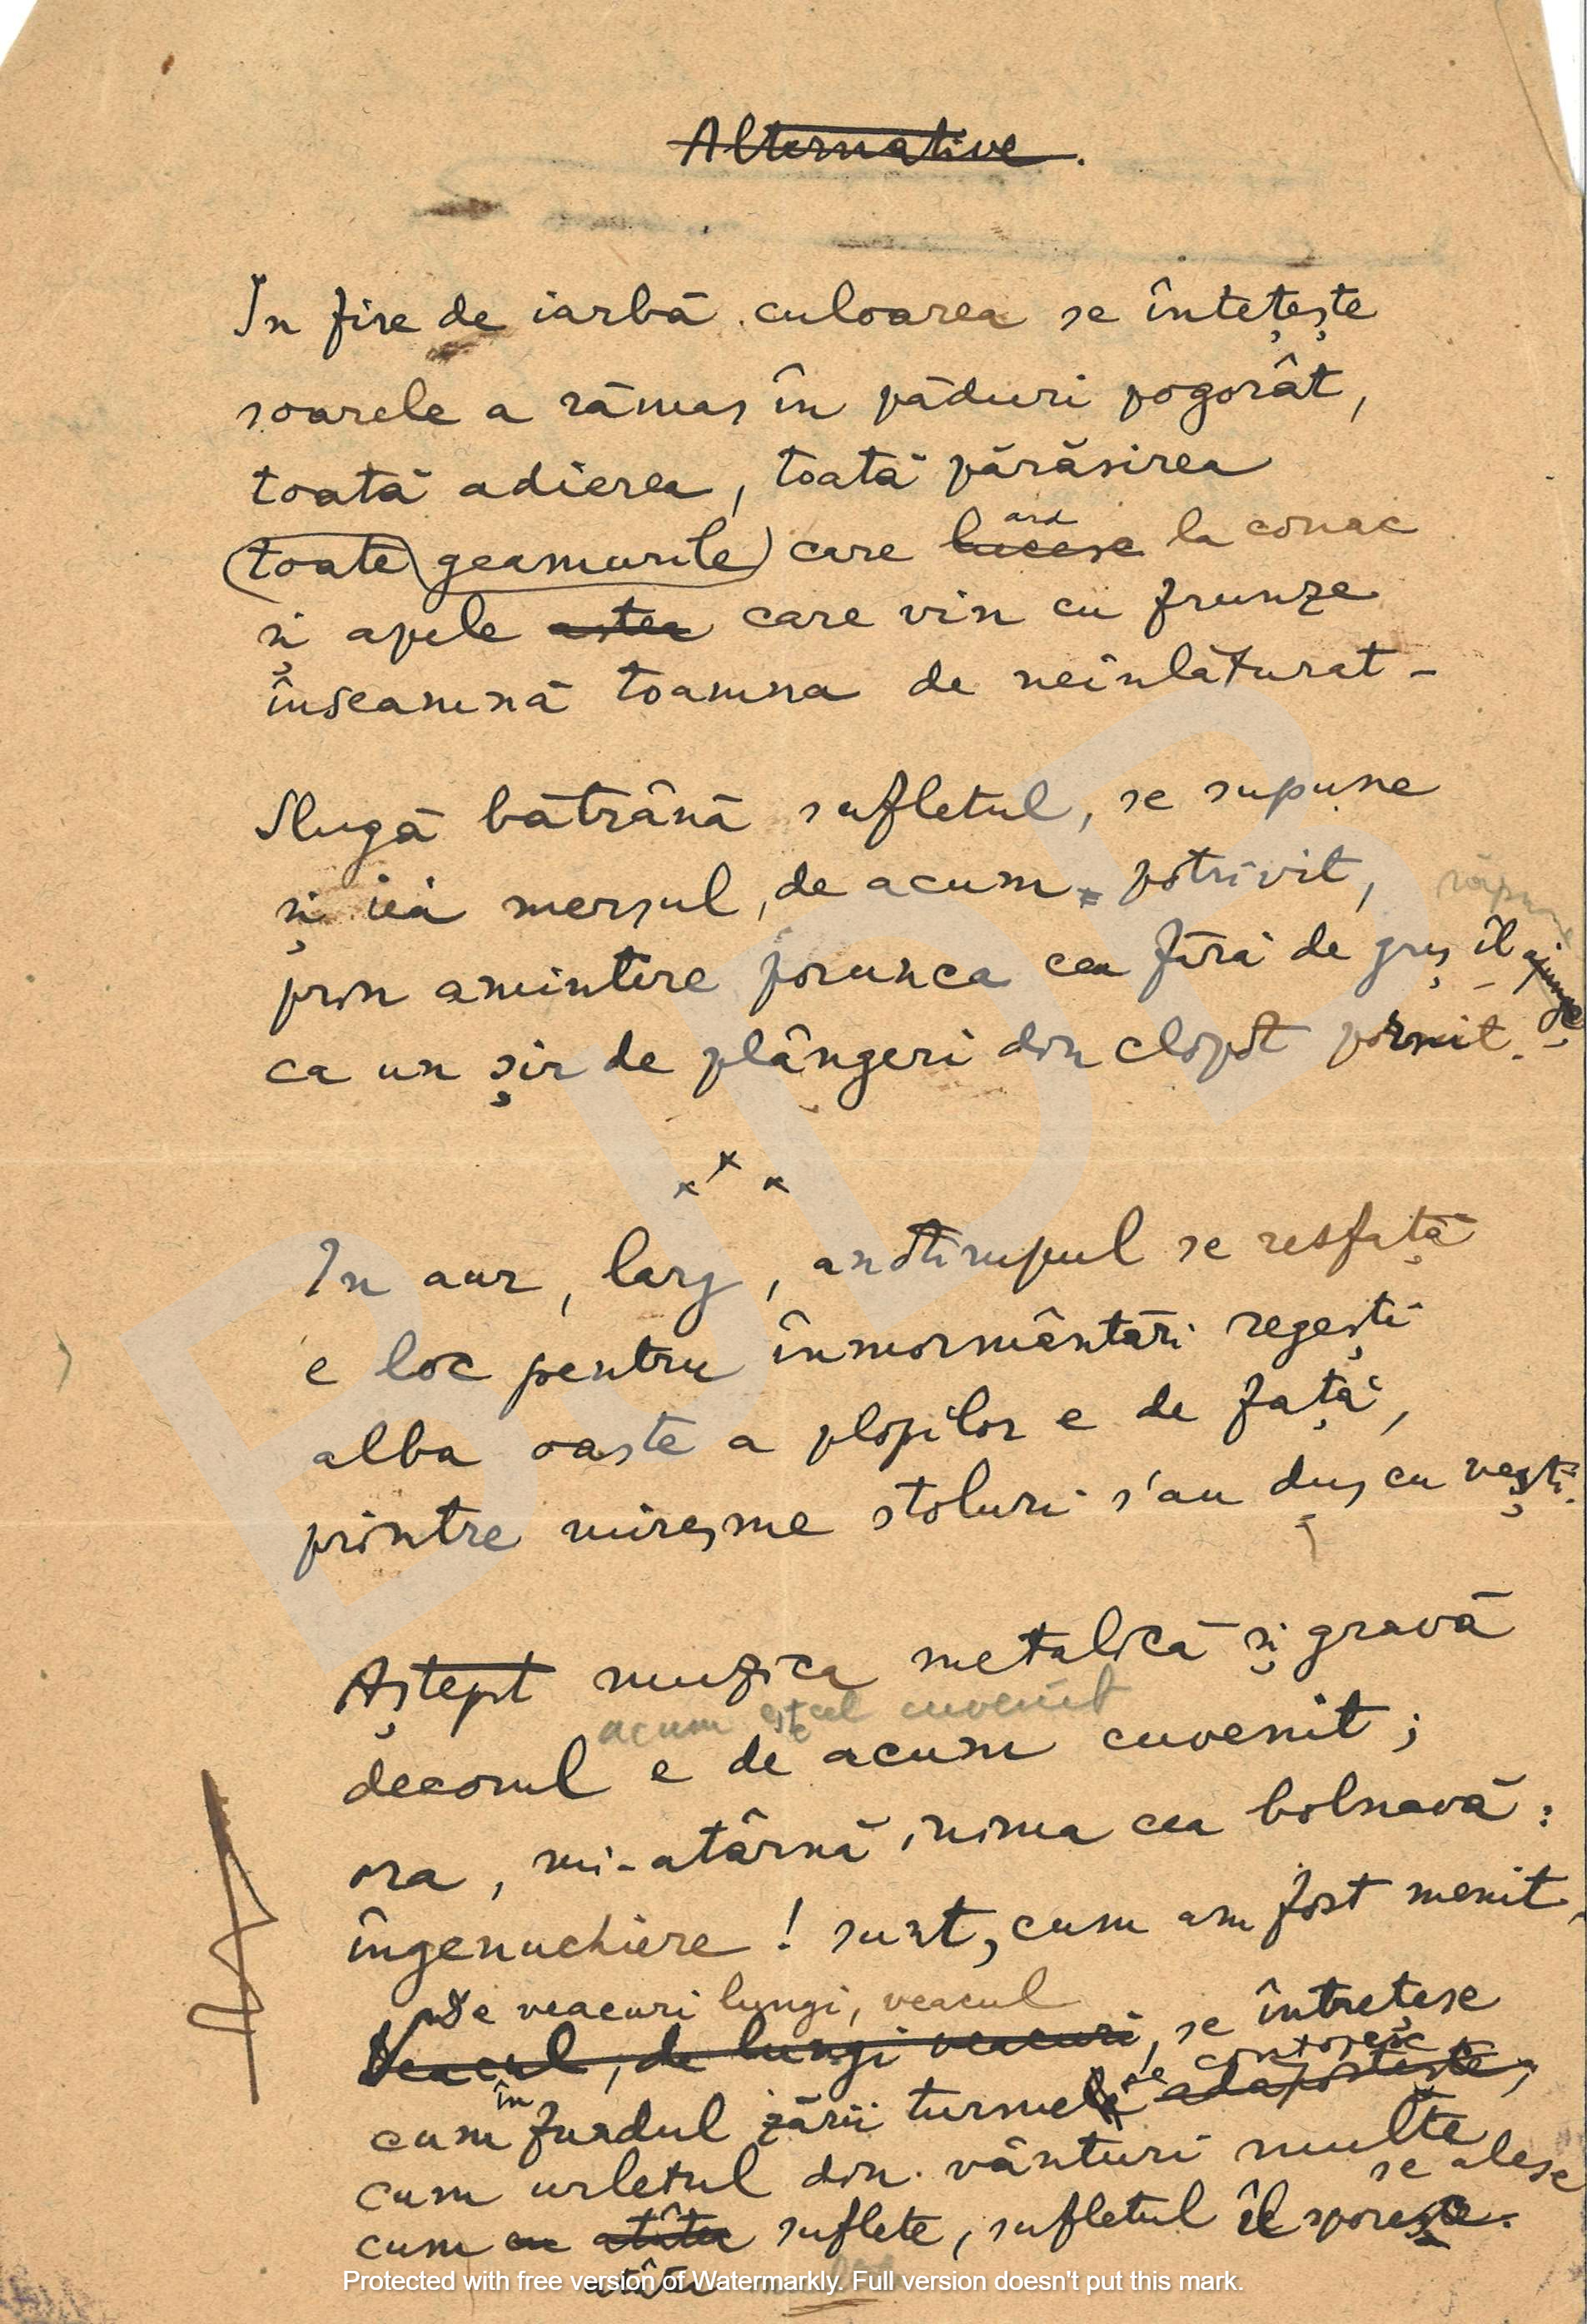 Alternative.
În fire de iarbă culoarea se întețește
soarele a rămas în păduri pogorât,
toată adierea, toată părăsirea
ard
(toate) (geamurile) care lucesc la conac
și apele astea care vin cu frunze
înseamnă toamna de neînlăturat -
Slugă bătrână sufletul, se supune
și iea mersul, de acum potrivit,
prin amintire porunca cea fără de greș îl ajunge
ca un șir de plângeri din clopot pornit.
x x x
In aur, larg, anotimpul se resfață
e loc pentru înmormântări regești
alba oaste a plopilor e de față,
printre miresme stoluri s'au dus cu vești.
Aștept muzica metalică și gravă
acum este cel cuvenit
decorul e de acum cuvenit;
ora, mi-atârnă inima cea bolnavă:
îngenuchiere! sunt, cum am fost menit.
De veacuri lungi, veacul
Veacul, de lungi veacuri, se întrețese
în se contopesc
cum fundul zării turmele adăpostește,
cum urletul din vânturi multe
se alese
cum cu atâta suflete, sufletul îl sporește.
atâta
Protected with free version of Watermarkly. Full version doesn't put this mark.